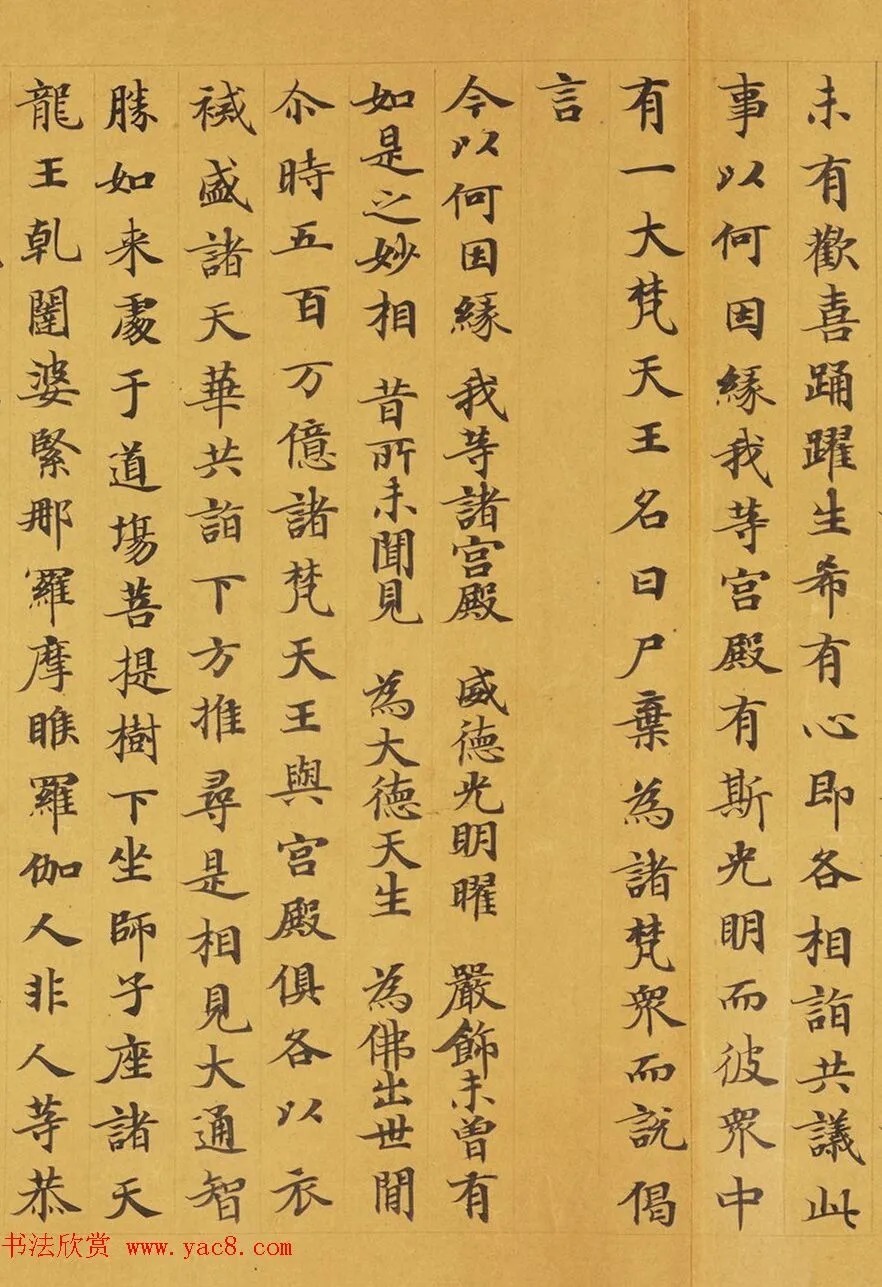 未有歡喜踊躍生希有心即各相詣共議此
事以何因緣我等宮殿有斯光明而彼眾中
有一大梵天王名曰尸棄為諸梵眾而說偈
言
今以何因緣 我等諸宮殿 威德光明曜 嚴飾未曾有
如是之妙相 昔所未聞見 為大德天生 為佛出世間
尒時五百万億諸梵天王與宮殿俱各以衣
裓盛諸天華共詣下方推尋是相見大通智
勝如来處于道場菩提樹下坐師子座諸天
龍王乹闥婆緊那羅摩睺羅伽人非人等恭
书法欣赏 www.yac8.com